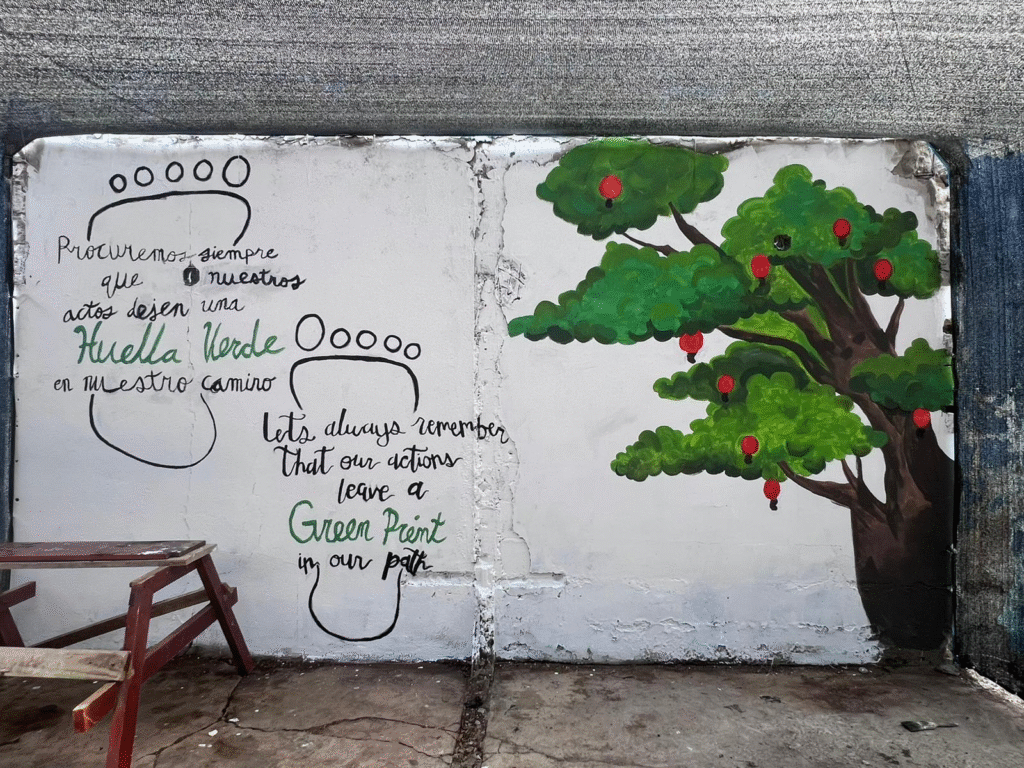 Procuremos siempre
que nuestros
actos dejen una
Huella Verde
en nuestro camino
Lets always remember
that our actions
leave a
Green Print
in our path